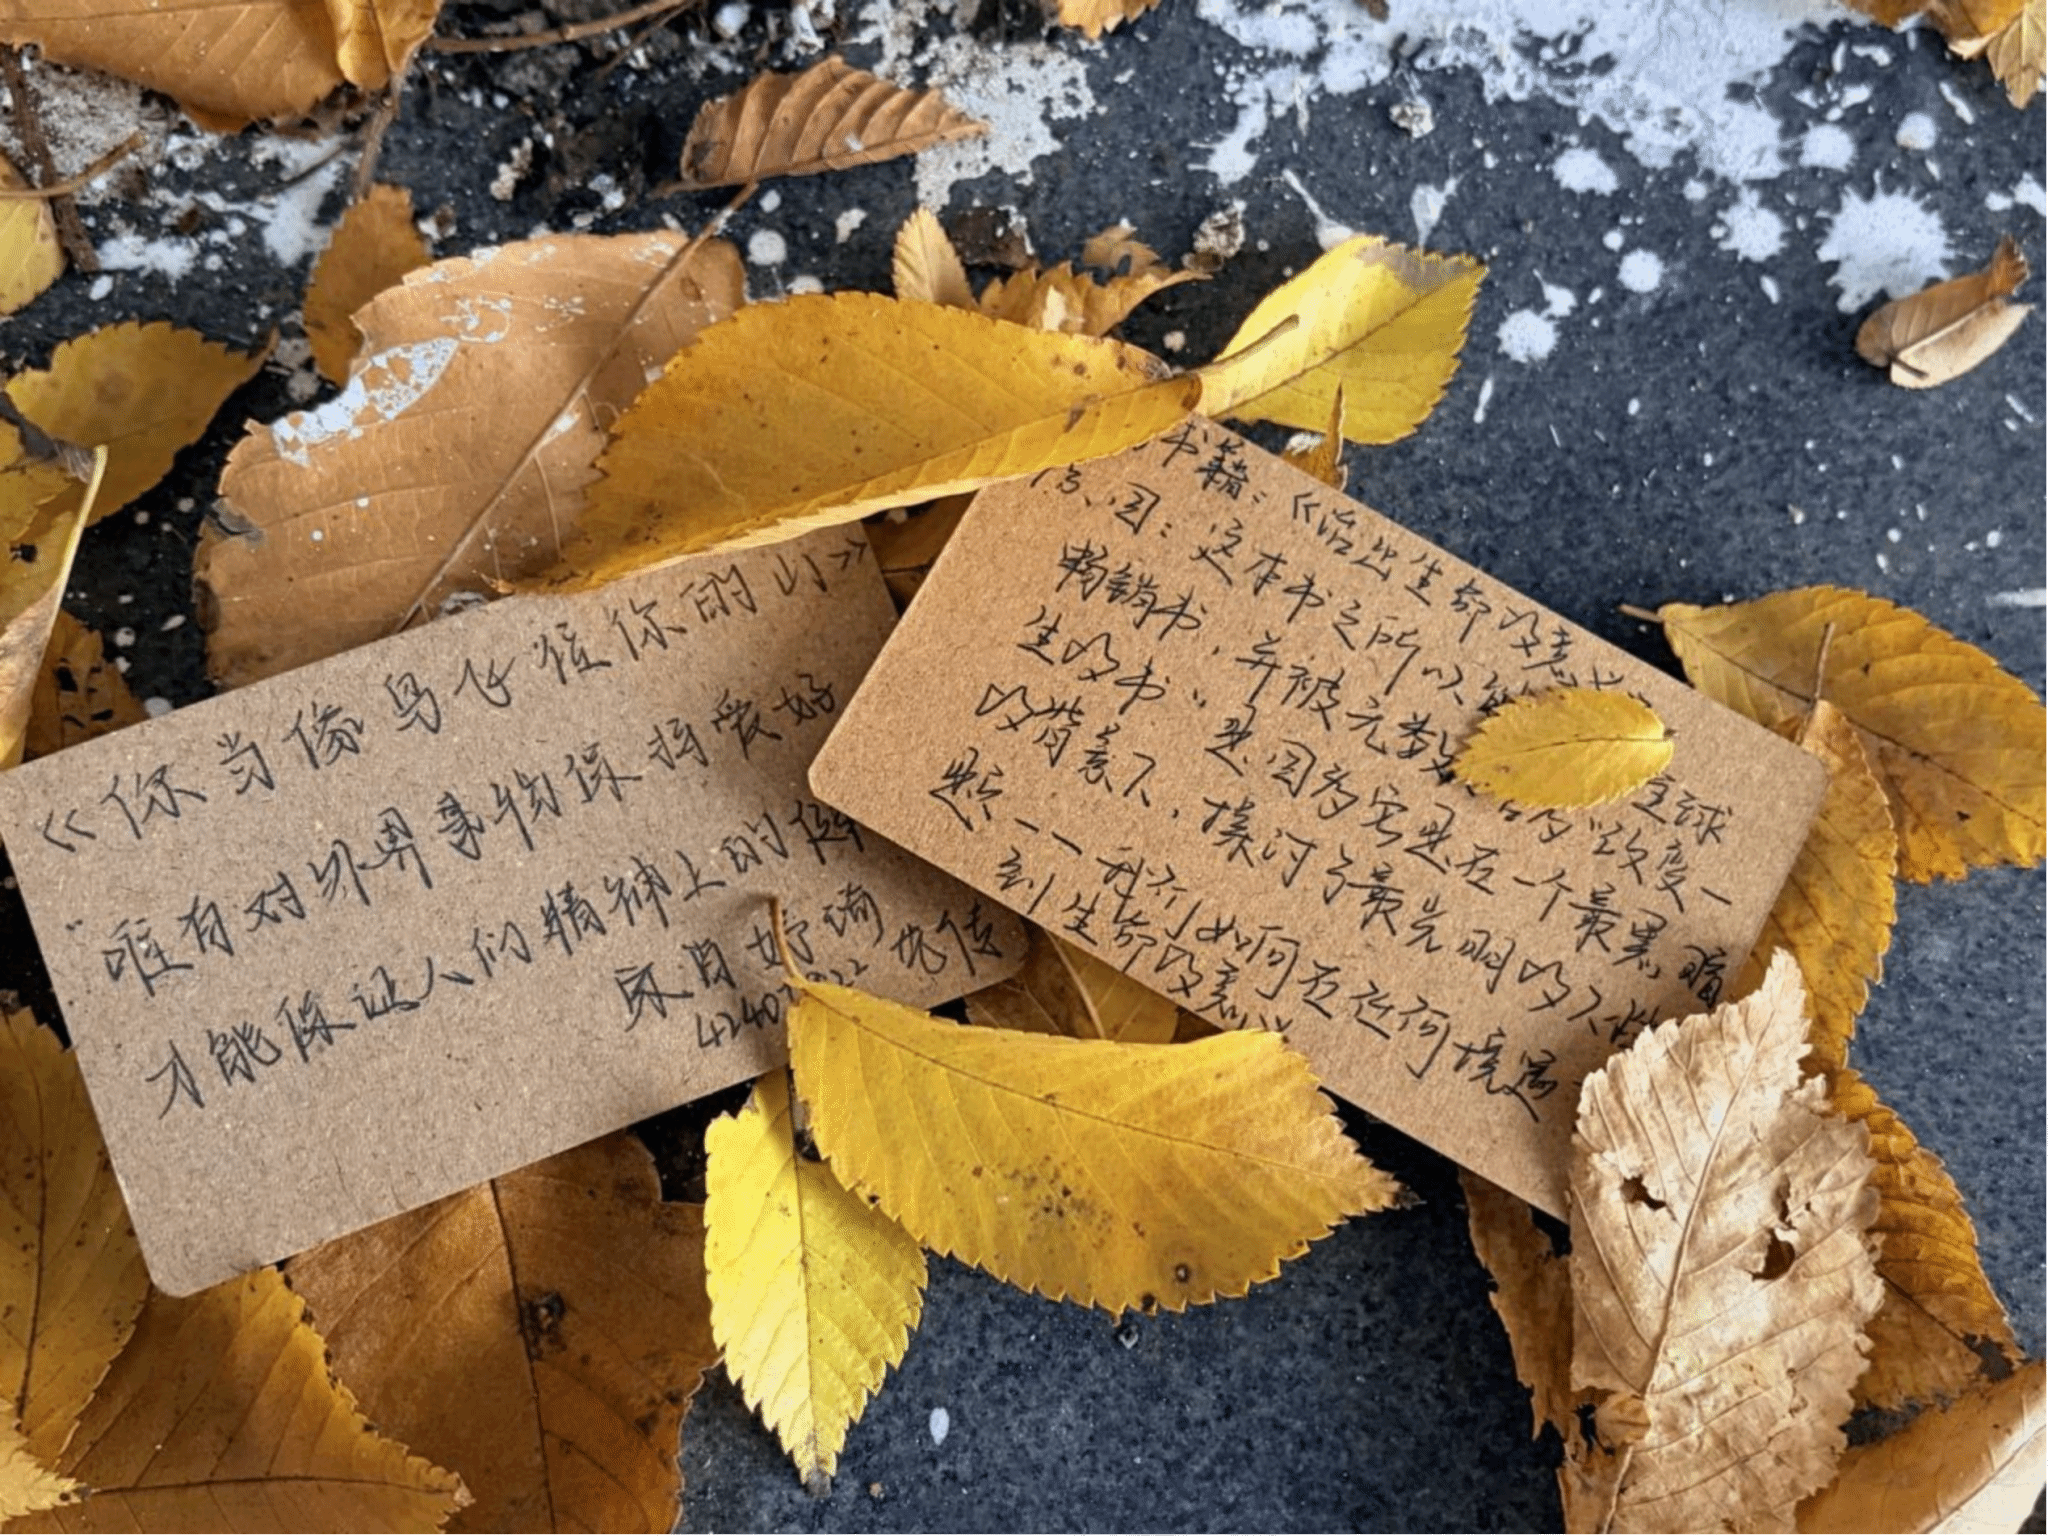 《你当像鸟飞往你的山》
"唯有对外界事物保持爱好
才能保证人们精神上的
书籍：《活出生命的意
原因：这本书之所以能 全球
畅销书，并被无数 "改变一
生的书"，是因为它是在一个最黑暗
的背景下，探讨了最光明的人性
是：一一我们如何在任何境遇
到生命的意义